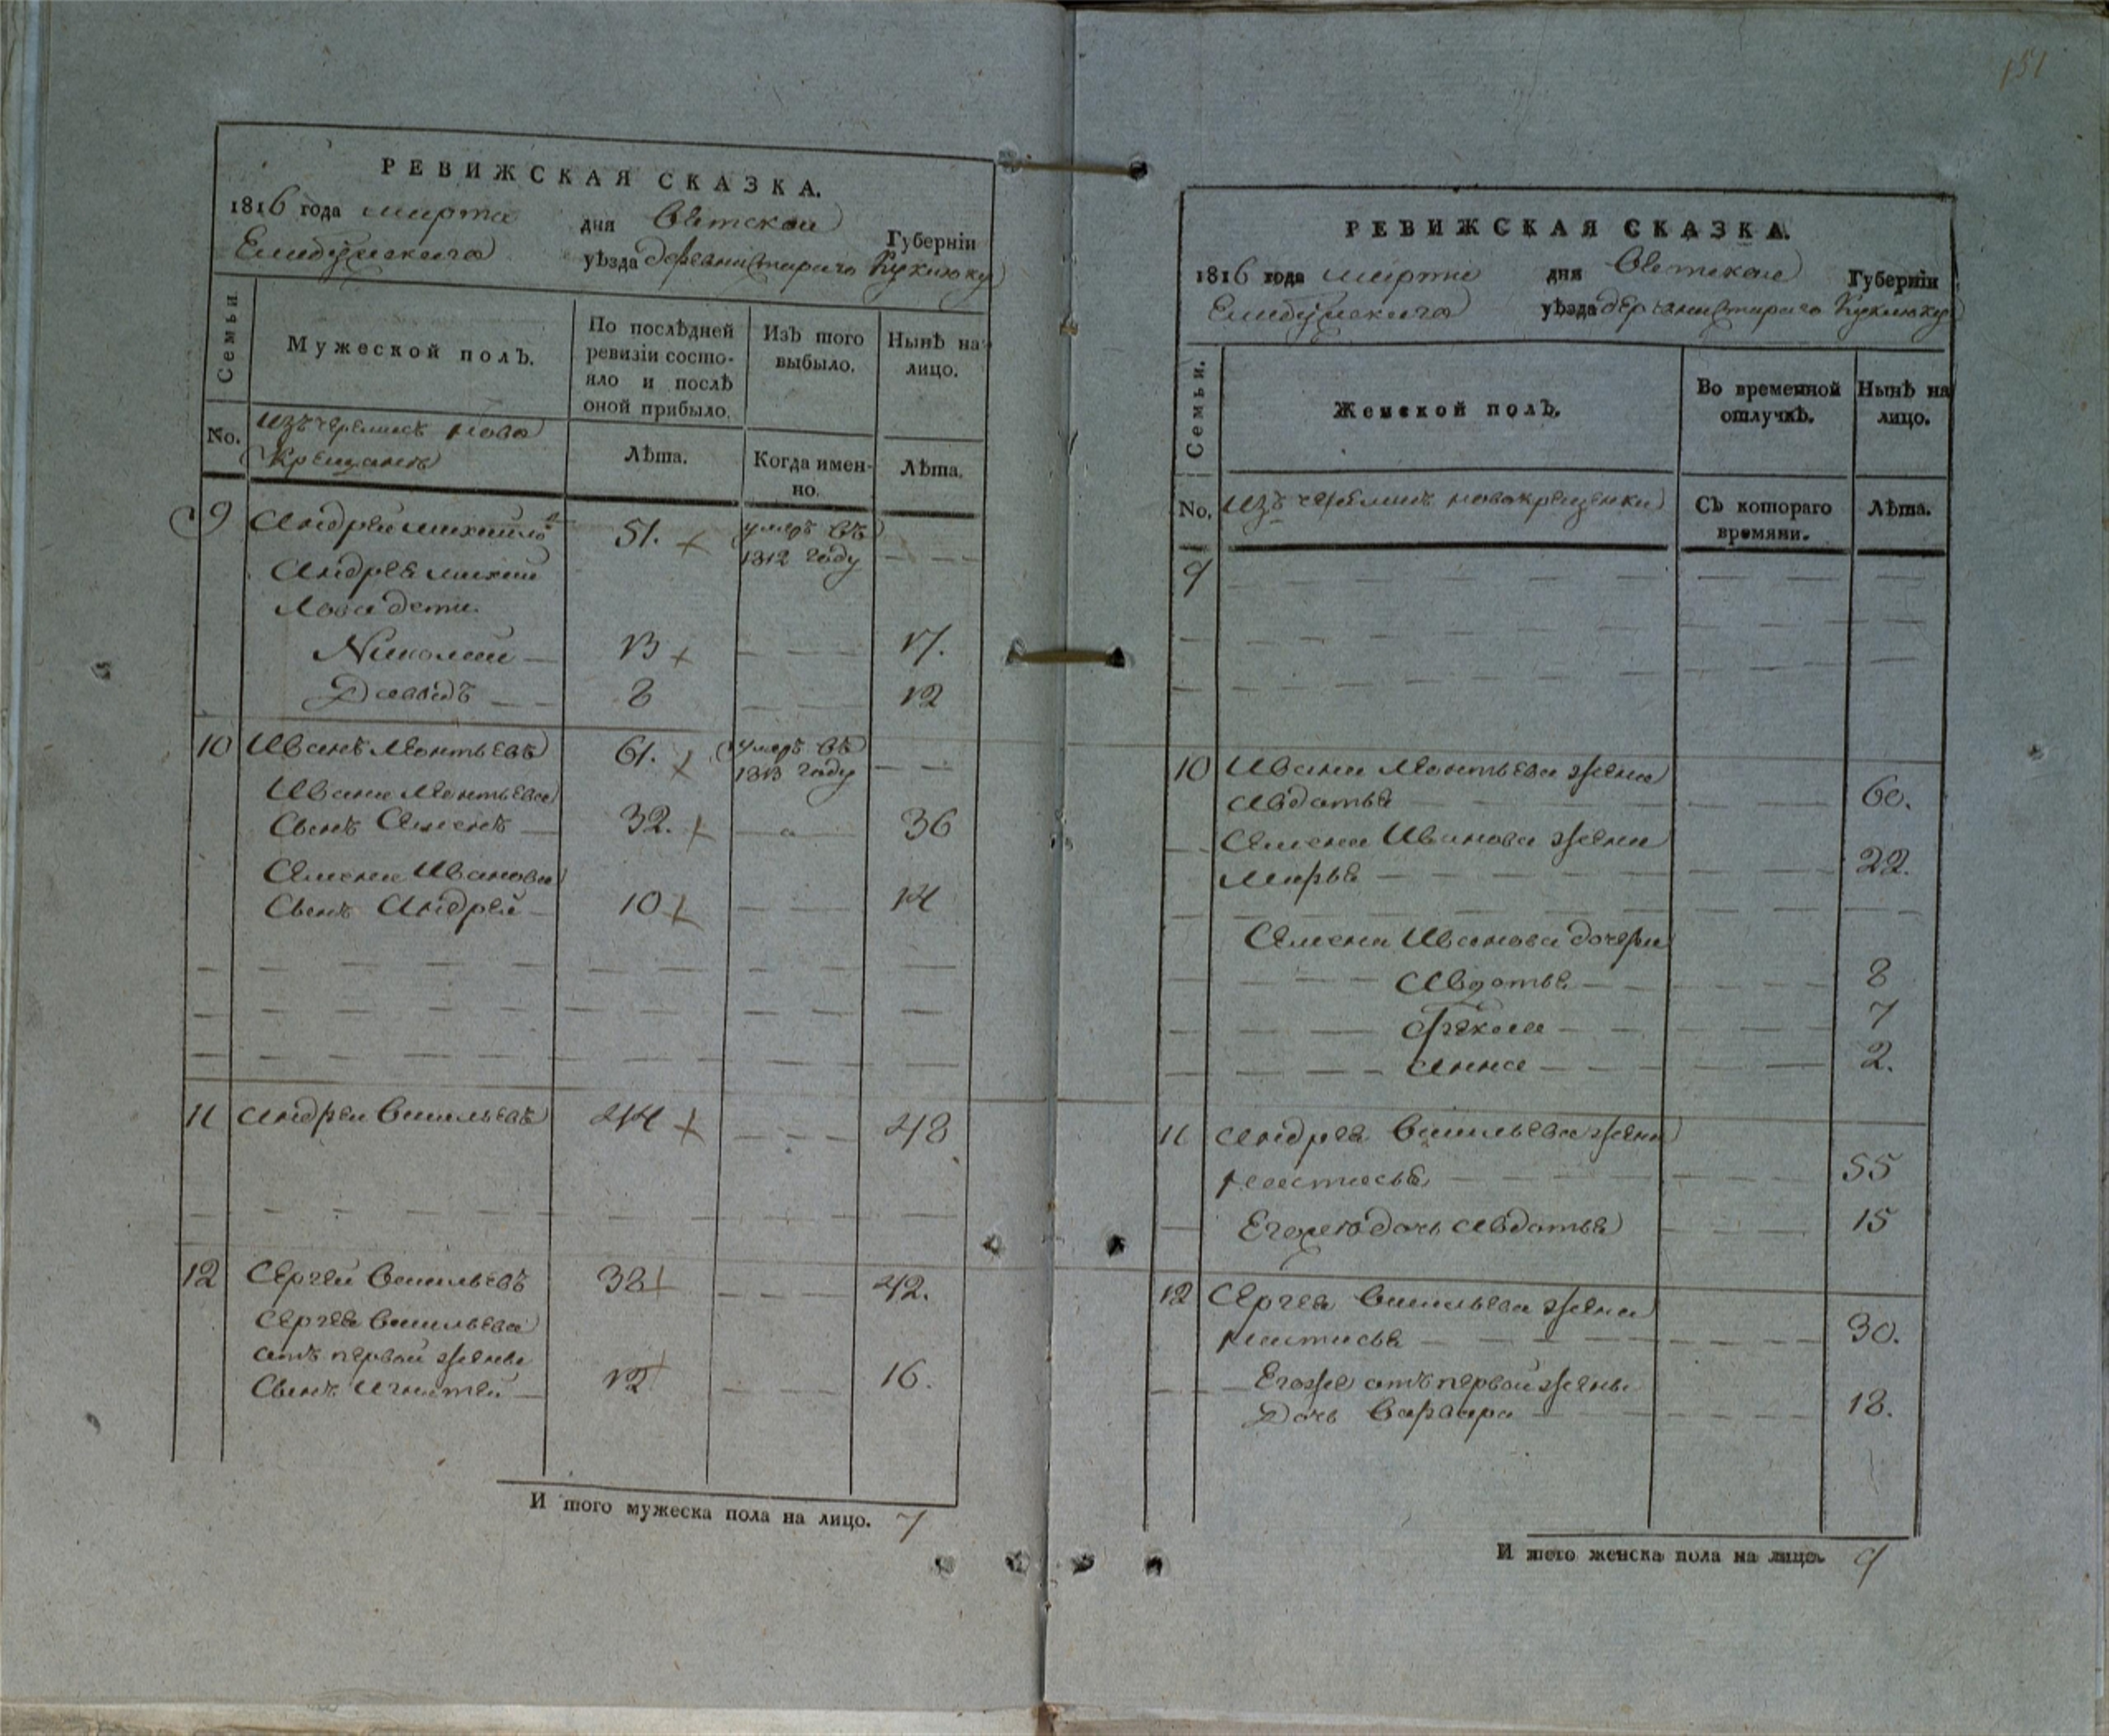 151
РЕВИЖСКАЯ СКАЗКА.
1816 года марта дня Вятской Губерніи
Елабужскаго уѣзда деревни Стараго Куклюку
Семьи.
Мужеской полъ.
По послѣдней
ревизіи состо-
яло и послѣ
оной прибыло.
Изъ того
выбыло.
Нынѣ на
лицо.
No.
Изъ черемисъ ново
крещанъ
Лѣта.
Когда имен-
но.
Лѣта.
9 Андрей Михайловъ 51. умеръ въ
1812 году
Андрея Михай
лова дети
Николай 13 17.
Давидъ 8 12
10 Иванъ Леонтьевъ 61. умеръ въ
1813 году
Ивана Леонтьева
Сынъ Семенъ 32. 36
Семена Иванова
Сынъ Андрей 10 14
11 Андрей Васильевъ 44 48
12 Сергей Васильевъ 38 42.
Сергея Васильева
отъ первой жены
Сынъ Игнатей 12 16.
И того мужеска пола на лицо. 7
РЕВИЖСКАЯ СКАЗКА.
1816 года марта дня Вятской Губерніи
Елабужскаго уѣзда деревни Стараго Куклюку
Семьи.
Женской полъ.
Во временной
отлучкѣ.
Нынѣ на
лицо.
No. Изъ черемисъ новокрещенки
Съ котораго
времяни.
Лѣта.
9
10 Ивана Леонтьева жена
Авдотья 60.
Семена Иванова жена
Марья 22.
Семена Иванова дочери
Авдотья 8
Фекла 7
Анна 2.
11 Андрея Васильева жена
Настасья 55
Егоже дочь Авдотья 15
12 Сергея Васильева жена
Настасья 30.
Егоже отъ первой жены
Дочь Варвара 18.
И того женска пола на лицо. 9